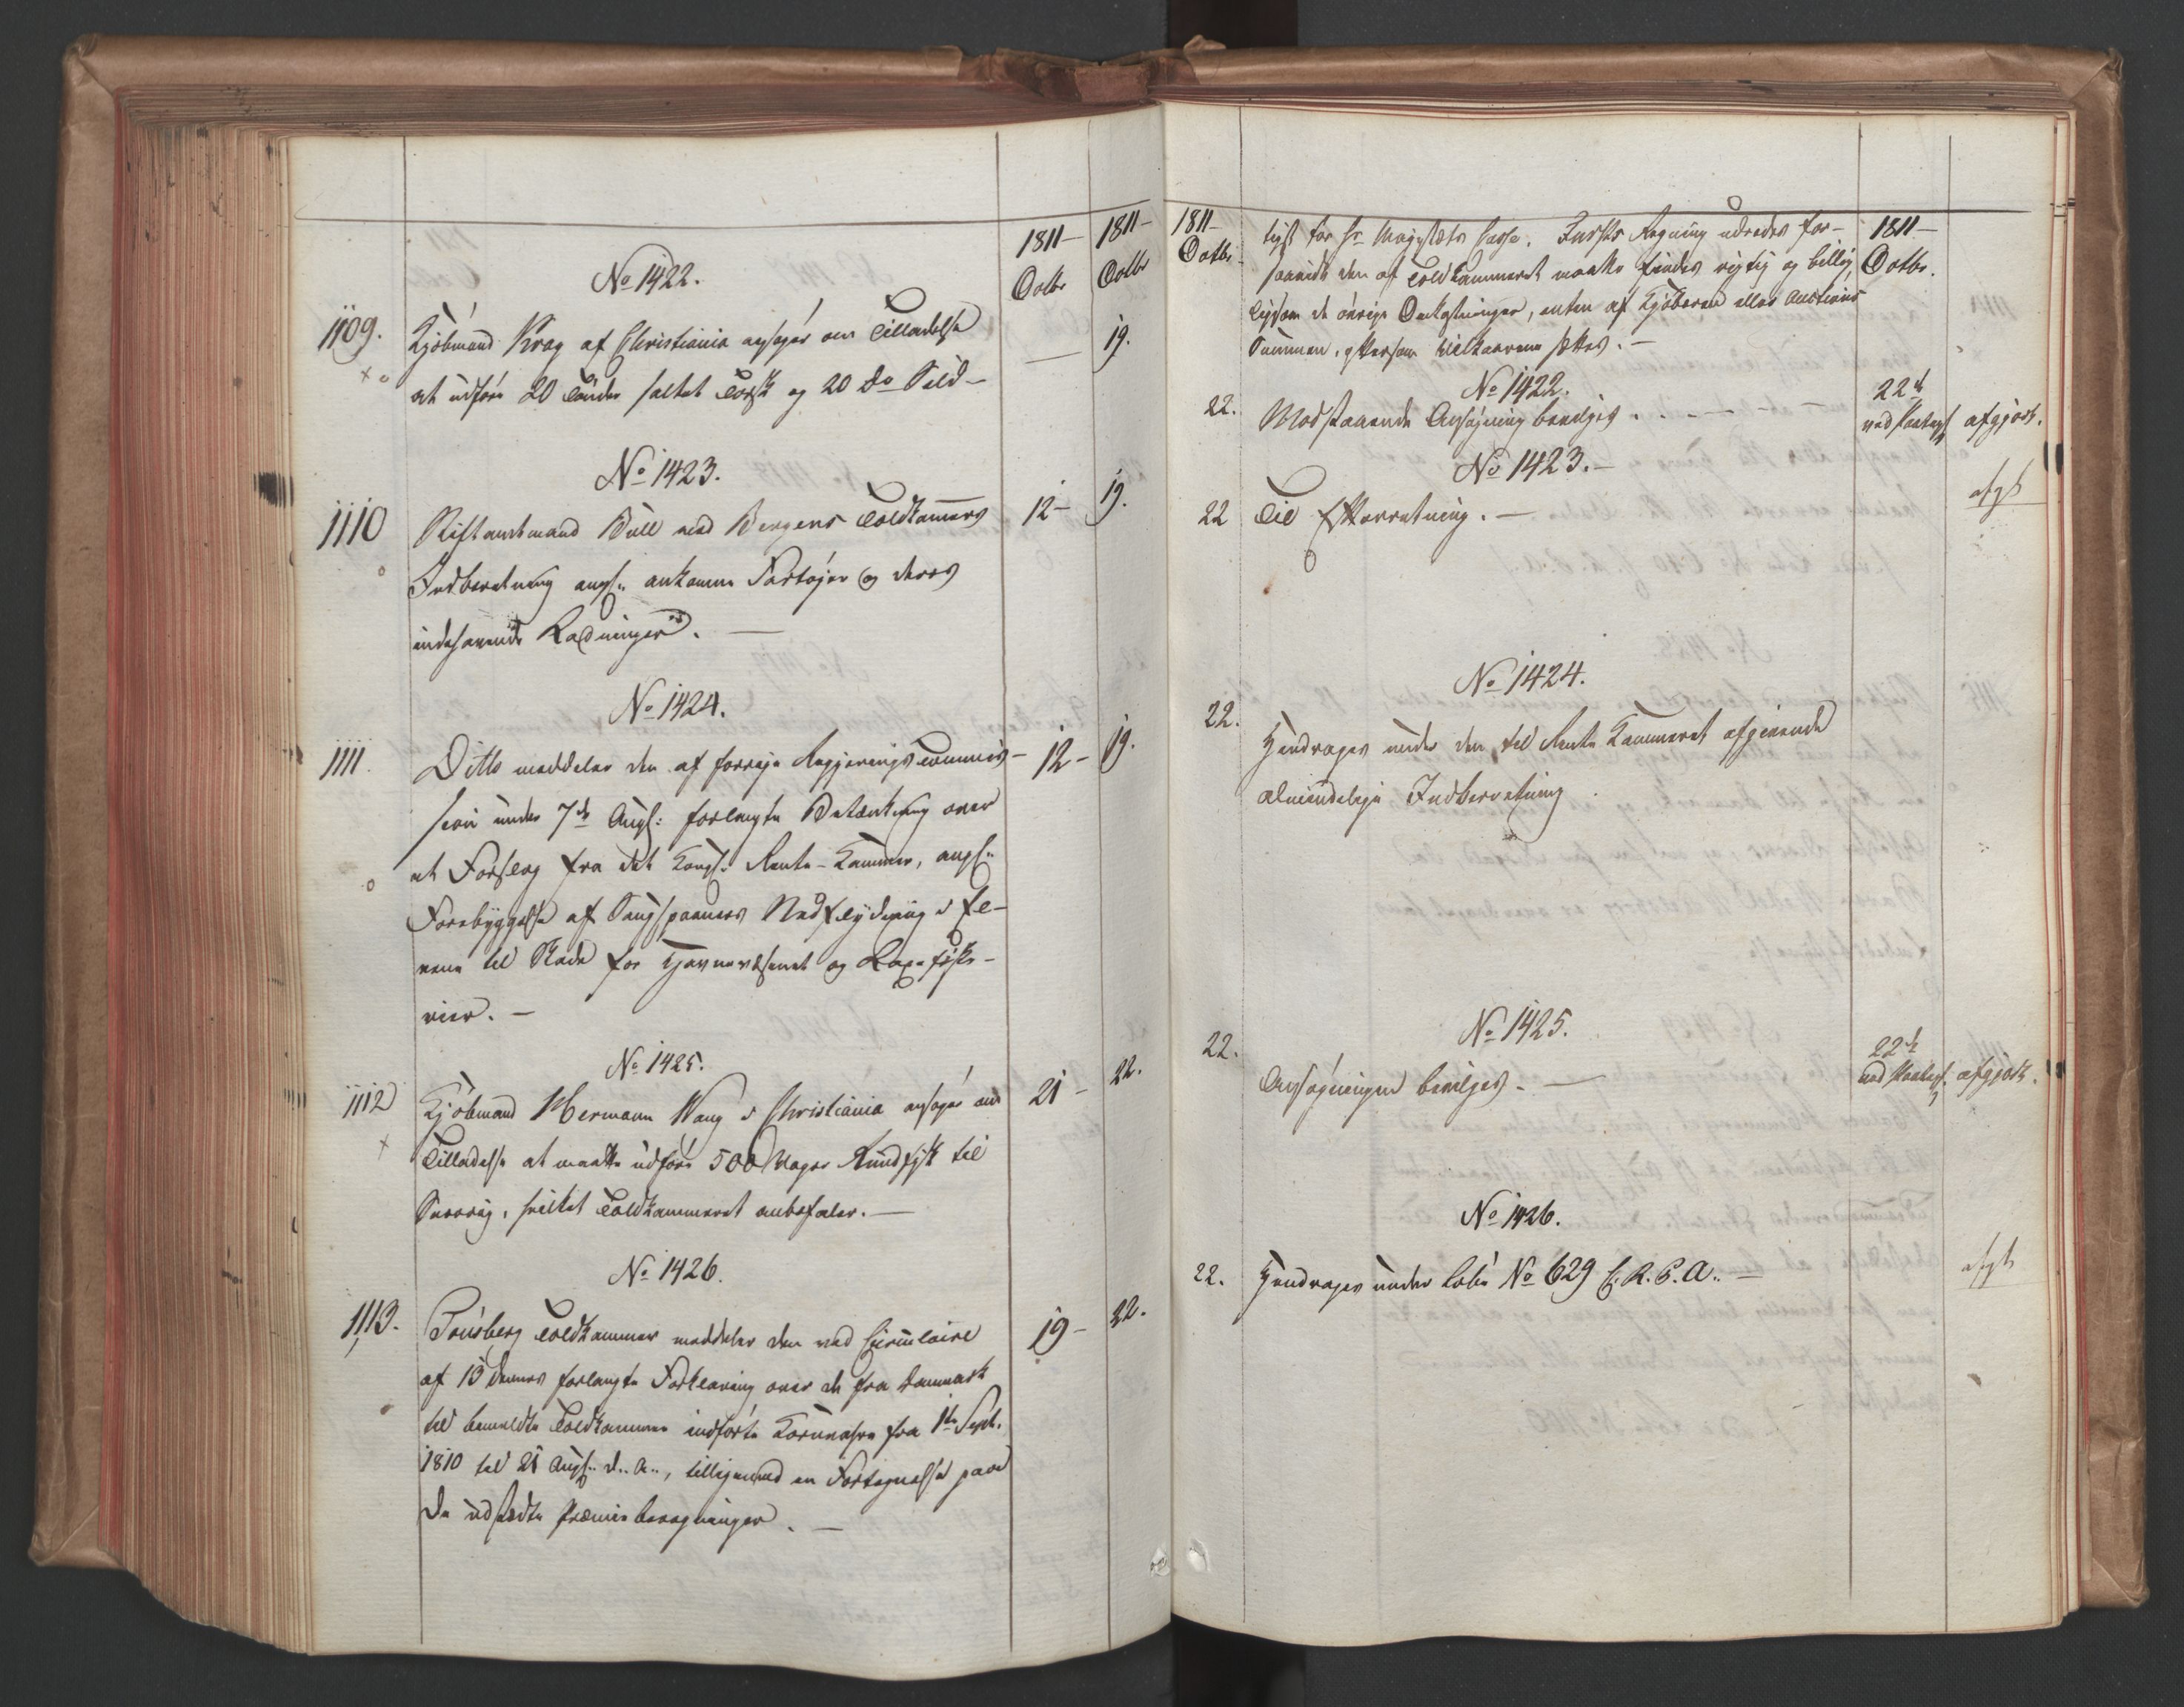 1811 –
Octbr
1811 –
Octbr
No 1422.
1109.
Kjöbmand Krag af Christiania ansøger om Tilladelse
at udföre 20 Tönder saltet Torsk og 20 do Sild –
— 19.
No 1423.
1110
Stiftamtmand Bull med Bergens Toldkamers
Indberetning angl. ankomne Fartøjer og deres
indehavende Ladninger. —
12 – 19.
No 1424.
1111.
Ditto meddeler den af forrige Regjerings Commis-
sion under 7de Augs: forlangte Betænkning over
et Forslag fra det Kongl. Rente-Kammer, angl.
Forebyggelse af Saugspaaners Nedflydning i El-
vene til Skade for Havnevæsenet og Laxefiske-
rier. —
12 – 19.
No 1425.
1112
Kjöbmand Hermann Wang i Christiania ansøger om
Tilladelse at maatte udföre 500 Voger Rundfisk til
Sverrig, hvilket Toldkammeret anbefaler. —
21 – 22.
No 1426.
1113.
Tönsberg Toldkammer meddeler den ved Circulaire
af 13 dennes forlangte Forklaring over de fra Danmark
til bemeldte Toldkammer indförte Kornvahre fra 1te Sept.
1810 til 21 Augs. d. A., tilligemed en Fortegnelse paa
de udstædte Præmieberegninger. —
19 – 22.
1811 –
Octbr.
tigst for Hs Majestæts Casse. Fuschs Regning udredes for-
saavidt den af Toldkammeret maatte findes rigtig og billig,
ligesom de övrige Omkostninger, enten af Kjöberen eller Auctions
Summen, eftersom Vilkaarene sættes. —
1811 –
Octbr.
No 1422.
22.
Modstaaende Ansøgning bevilges . . — —
22de
ved Paategn
afgjort.
No 1423. –
22
Til Efterretning. —
afgt
No 1424.
22.
Hendrages under den til Rente Kammeret afgivende
almindelige Indberetning.
No 1425.
22.
Ansøgningen bevilges. —
22de
ved Paategn.
afgjort.
No 1426.
22.
Hendrages under Lobe No 629 C. R. P. A. —
afgt